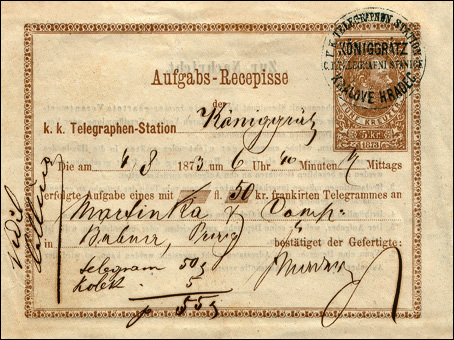 K. K. TELEGRAPHEN STATION
KÖNIGGRÄTZ
KRALOVE HRADEC
FÜNF KREUZER
5 Kr.
1873
Aufgabs-Recepisse
der
k. k. Telegraphen-Station Königgrätz
Die am 4/8 1873 um 6 Uhr Minuten Mittags
erfolgte Aufgabe eines mit fl. 50 kr. frankirten Telegrammes an
Martinka & Comp.
in Bubna, Prag bestätiget der Gefertigte:
telegram 50
kolek 5
55